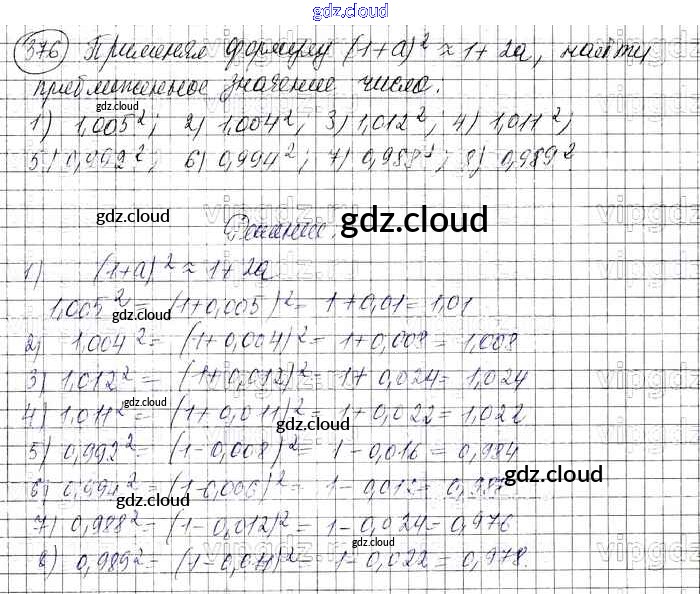 gdz.cloud
376 Применяя формулу (1+a)² ≈ 1+2a, найти
приближенное значение числа:
gdz.cloud
1) 1,005²; 2) 1,004²; 3) 1,012²; 4) 1,011²;
gdz.cloud gdz.cloud
5) 0,992²; 6) 0,994²; 7) 0,988²; 8) 0,989²
gdz.cloud gdz.cloud
Решение.
1) (1+a)² ≈ 1+2a
1,005² = (1+0,005)² = 1+0,01 = 1,01
gdz.cloud gdz.cloud
2) 1,004² = (1+0,004)² = 1+0,008 = 1,008
3) 1,012² = (1+0,012)² = 1+0,024 = 1,024
gdz.cloud
4) 1,011² = (1+0,011)² = 1+0,022 = 1,022
gdz.cloud
5) 0,992² = (1-0,008)² = 1-0,016 = 0,984
gdz.cloud
6) 0,994² = (1-0,006)² = 1-0,012 =
gdz.cloud
7) 0,988² = (1-0,012)² = 1-0,024 = 0,976
gdz.cloud
8) 0,989² = (1-0,011)² = 1-0,022 = 0,978.